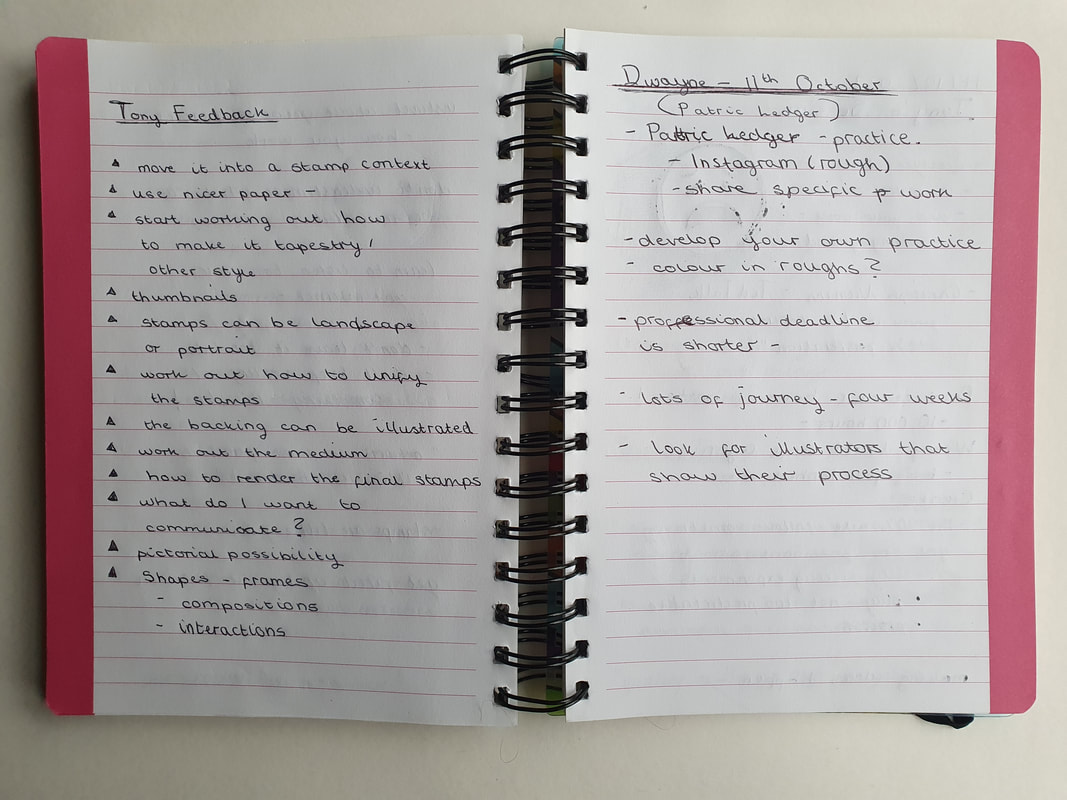 Tony Feedback
▲ move it into a stamp context
▲ use nicer paper -
▲ start working out how
to make it tapestry /
other style
▲ thumbnails
▲ stamps can be landscape
or portrait
▲ work out how to unify
the stamps
▲ the backing can be illustrated
▲ work out the medium
▲ how to render the final stamps
▲ what do I want to
communicate?
▲ pictorial possibility
▲ Shapes - frames
- compositions
- interactions
Dwayne - 11th October
(Patric Ledger)
- Patric Ledger - practice.
- Instagram (rough)
- share specific work
- develop your own practice
- colour in roughs?
- professional deadline
is shorter -
- lots of journey - four weeks
- look for illustrators that
show their process